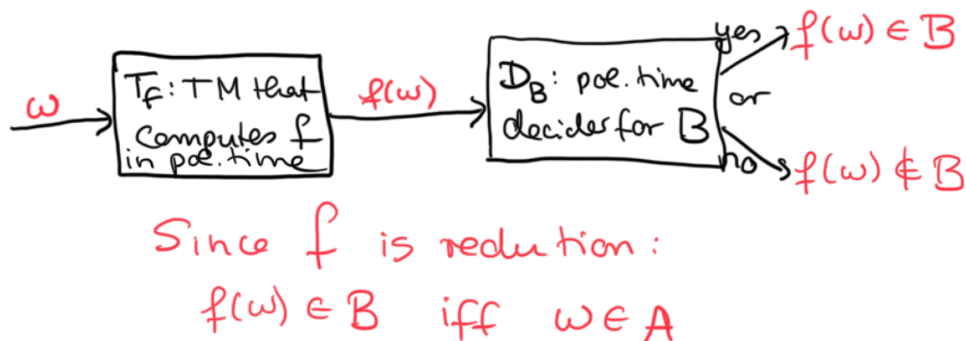 ω
T_f: TM that
computes f
in pol. time
f(ω)
D_B: pol. time
decider for B
yes
or
no
f(ω) ∈ B
f(ω) ∉ B
Since f is redution:
f(ω) ∈ B iff ω ∈ A